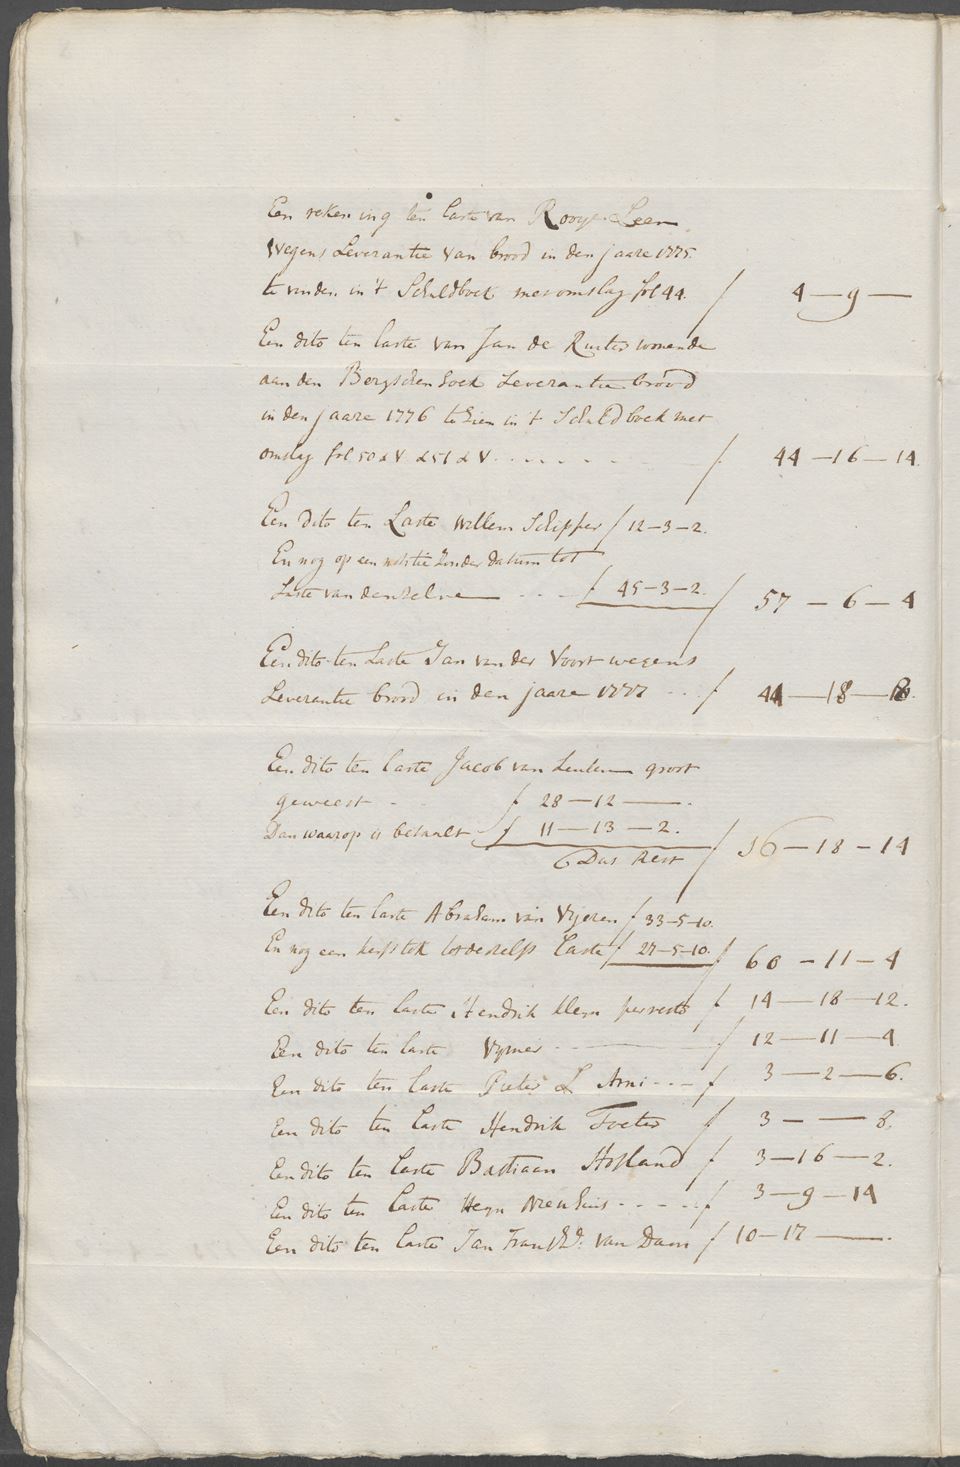 Een rekening ten laste van Rooye Leen
Wegens Leverantie van brood in den jaare 1775
te vinden in 't Schuldboek met omslag fol 44. f 4 — 9 —
Een dito ten laste van Jan de Ruiter wonende
aan den Bergschenhoek Leverantie brood
in den jaare 1776 te zien in 't Schuldboek met
omslag fol 50 & V & 51 & V - - - - f 44 — 16 — 14
Een dito ten Laste Willem Schipper f 12 — 3 — 2.
En nog op een notitie zonder datum tot
Laste van denzelve - - - f 45 — 3 — 2. f 57 — 6 — 4
Een dito ten Laste Jan van der Voort wegens
Leverantie brood in den jaare 1777 - - f 44 — 18 —
Een dito ten laste Jacob van Leulen groot
geweest - f 28 — 12 — .
Dan waarop is betaalt f 11 — 13 — 2.
Dus Rest f 16 — 18 — 14
Een dito ten laste Abraham van Vijeren f 33-5-10.
En nog een kerfstok tot deszelfs Laste f 27-5-10. f 60 — 11 — 4
Een dito ten laste Hendrik per resto f 14 — 18 — 12.
Een dito ten laste Vymer f 12 — 11 — 4
Een dito ten laste Pieter L Arni - - - f 3 — 2 — 6.
Een dito ten laste Hendrik Foeter f 3 — — 8.
Een dito ten laste Bastiaan Hofland f 3 — 16 — 2.
Een dito ten laste Heyn - - - - f 3 — 9 — 14
Een dito ten laste Jan van Dam f 10 — 17 — .